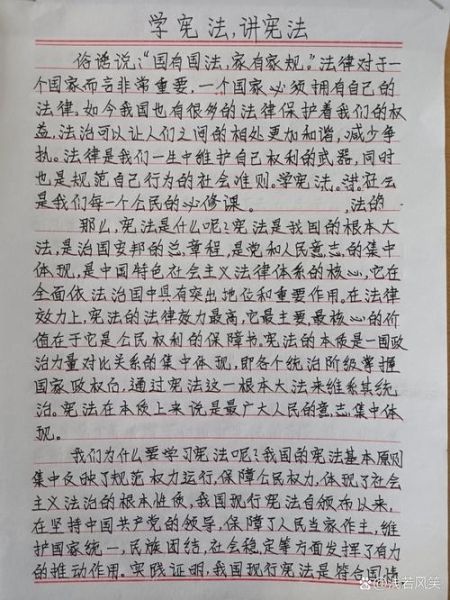 学宪法,讲宪法
俗语说:“国有国法,家有家规。”法律对于一
个国家而言非常重要,一个国家必须拥有自己的
法律。如今我国也有很多的法律保护着我们的权
益,法治可以让人们之间的相处更加和谐,减少争
执。法律是我们一生中维护自己权利的武器,同时
也是规范自己行为的社会准则。学宪法。讲社会
是我们每一个公民的必修课。 ,法的
那么,宪法是什么呢?宪法是我国的根本大
法,是治国安邦的总章程,是党和人民意志的集中
体现,是中国特色社会主义法律体系的核心,它在
全面依法治国中具有突出地位和重要作用。在法律
效力上,宪法的法律效力最高,它最主要、最核心的价
值在于它是公民权利的保障书。宪法的本质是一国政
治力量对比关系的集中体现,即各个统治阶级掌握
国家政权后,通过宪法这一根本大法来维系其统
治。宪法在本质上来说是最广大人民的意志集中体
现。
我们为什么要学习宪法呢?我国的宪法基本原则
集中反映了规范权力运行,保障公民权力,体现了社会
主义法治的根本性质,我国现行宪法自颁布以来,
在坚持中国共产党的领导,保障了人民当家作主,维
护国家统一,民族团结,社会稳定等方面发挥了有力
的推动作用。实践证明,我国现行宪法是符合国情
@浅若风笑